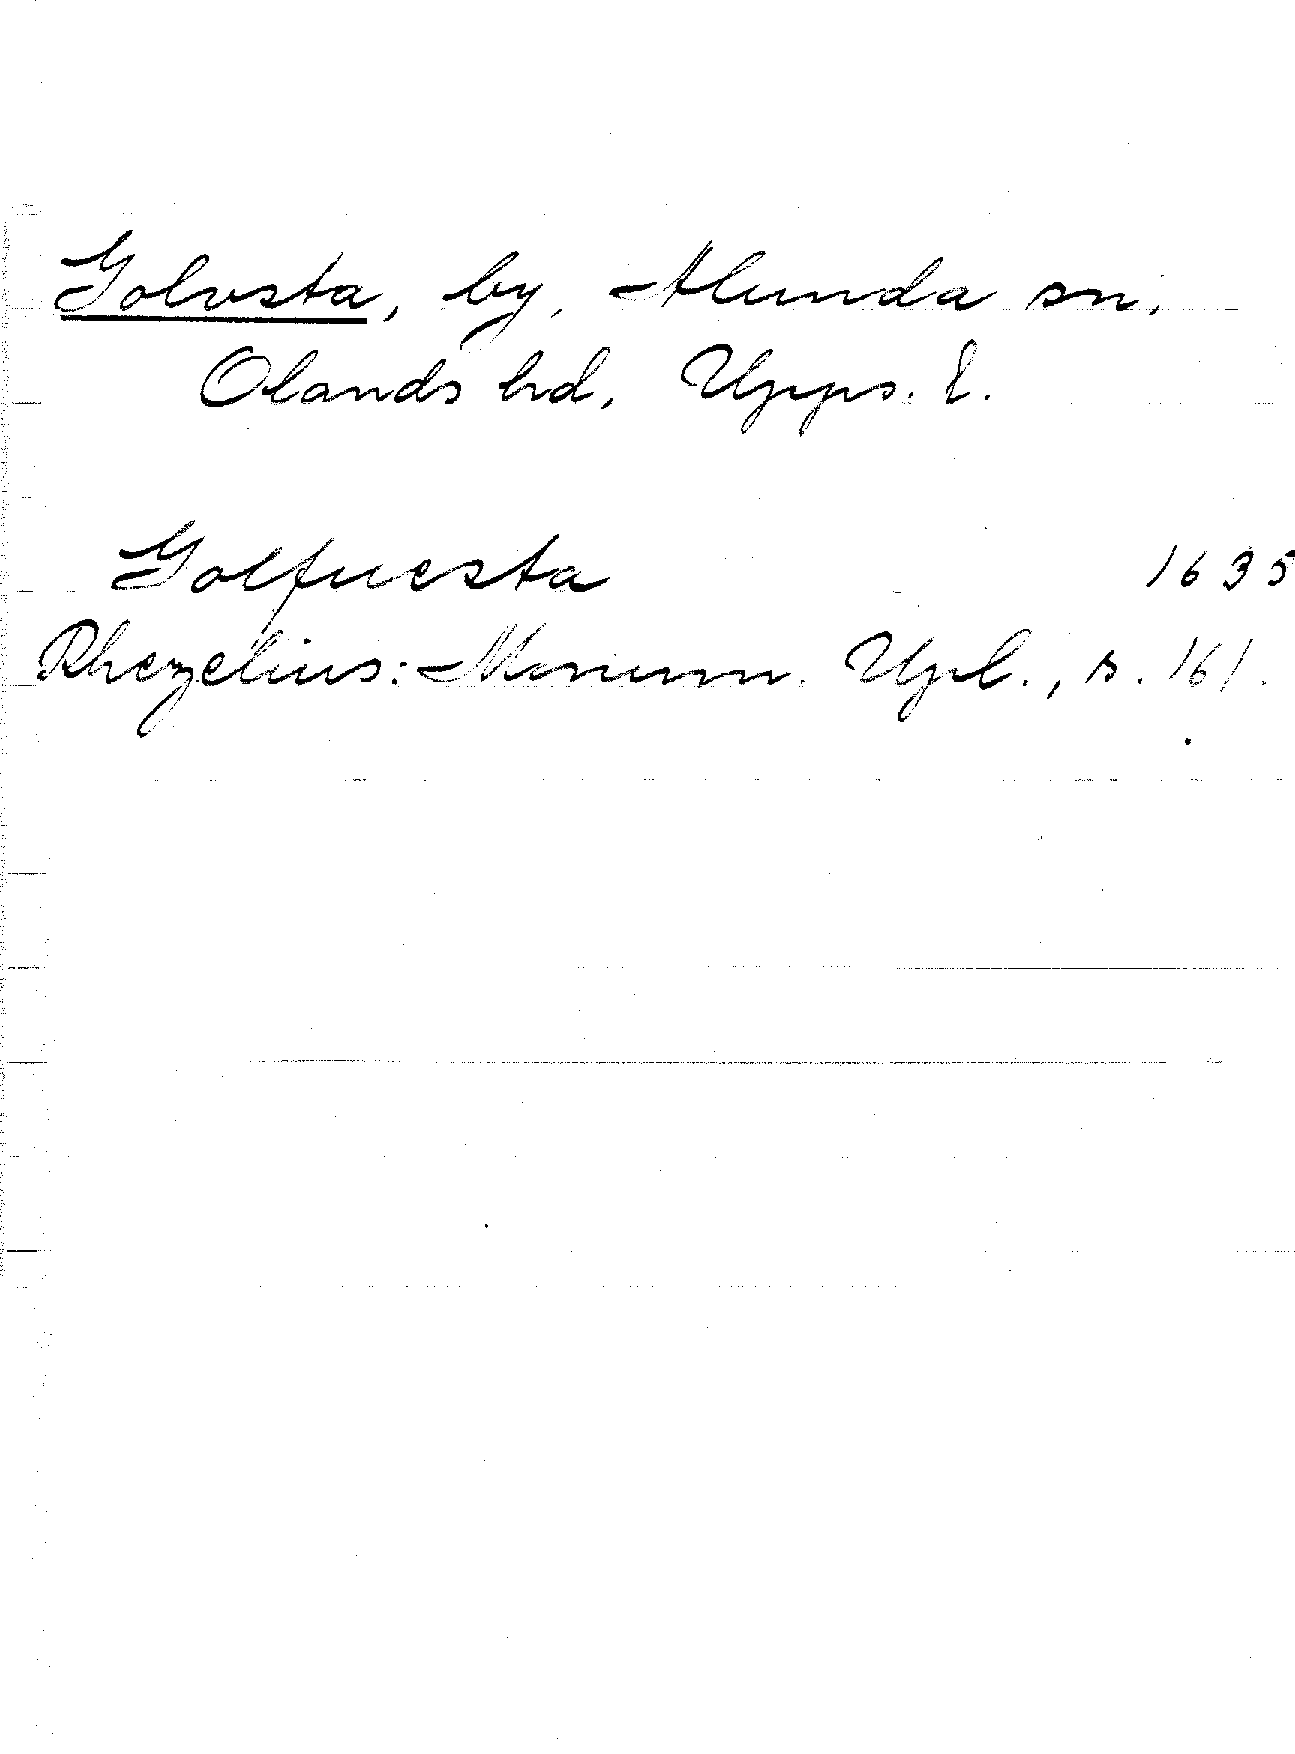 Golvsta, by, Alunda sn.
Olands hd, Upps. l.
Golfuesta 1635
Rhezelius: Monum. Upl., s. 161.